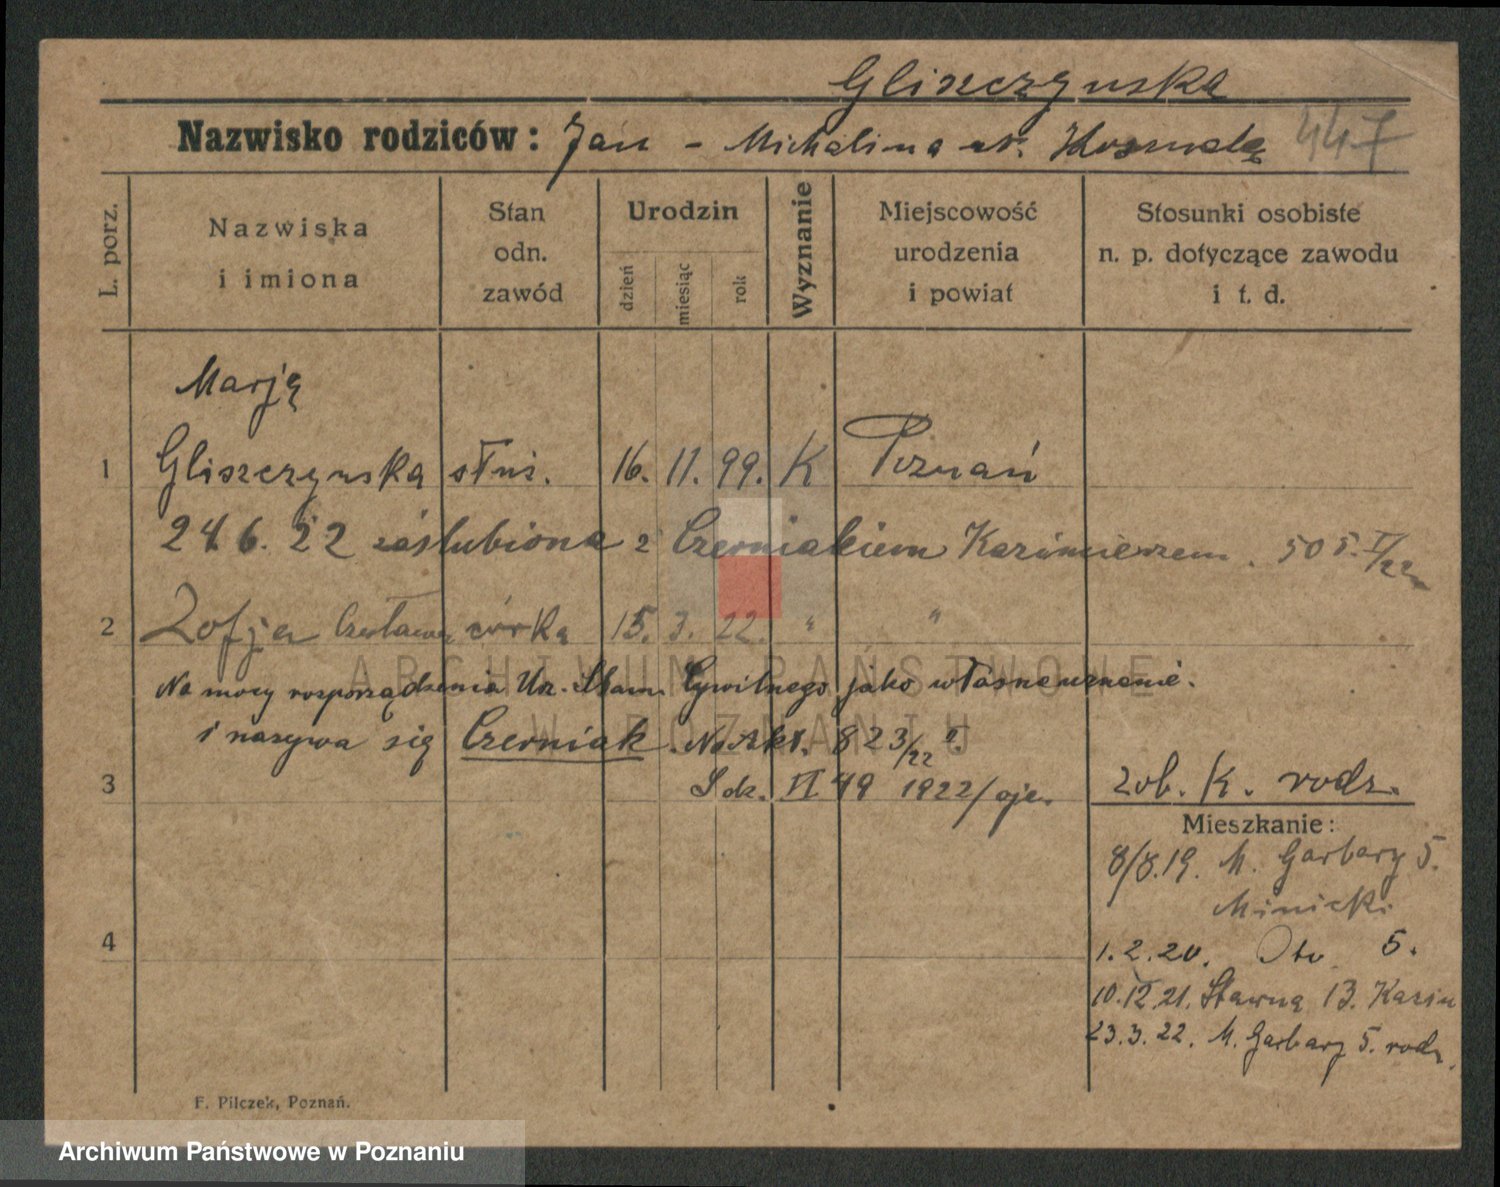 Gliszczynska
Nazwisko rodziców: Jan - Michalina 447
L. porz.
Nazwiska i imiona
Stan odn. zawód
Urodzin
dzień
miesiąc
rok
Wyznanie
Miejscowość urodzenia i powiat
Stosunki osobiste n. p. dotyczące zawodu i t. d.
Marja
1 Gliszczynska służ. 16. 11. 99. K Poznań
24. 6. 22 zaślubiona z Czerniakiem Kazimierzem.
2 Zofja Czesława córka 15. 3. 22. " "
Na mocy rozporządzenia Urz. Stanu Cywilnego jako własne uznanie.
i nazywa się Czerniak. No Akt. 823/22
3 VI 49 1922
zob. K. rodz.
Mieszkanie:
8/8.19. M. Garbary 5.
Minicki
4
1.2.20. 5.
10.IX.21. Stawna 13.
23.3.22. M. Garbary 5. rodz.
F. Pilczek, Poznań.
ARCHIWUM PAŃSTWOWE
W POZNANIU
Archiwum Państwowe w Poznaniu